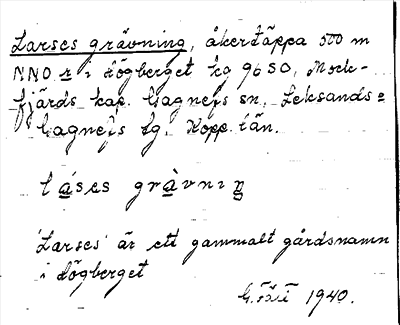 Larses grävning, åkertäppa 500 m
NNO r i Högberget kg 96 SO, Mock-
fjärds kap. Gagnefs sn, Leksands o
Gagnefs tg. Kopp. län.
lá̱ses grà̱vniŋ
'Larses' är ett gammalt gårdsnamn
i Högberget
1940.